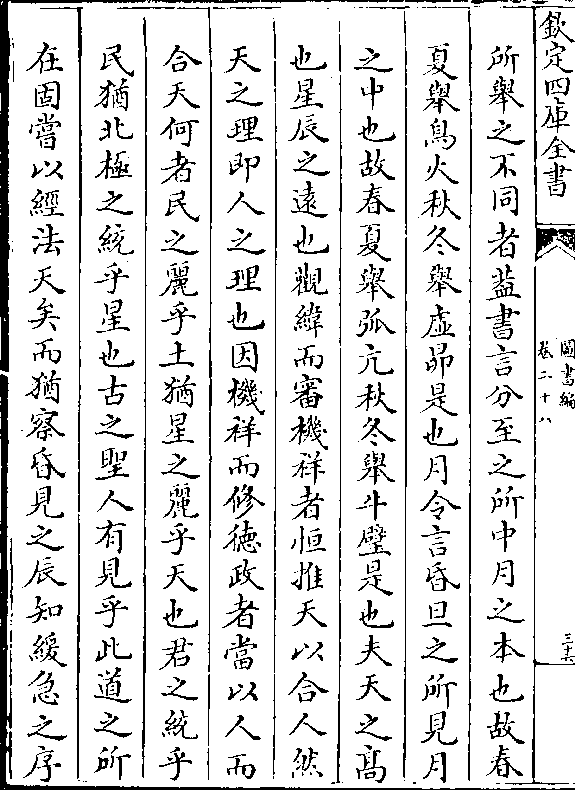 欽定四庫全書
圖書編
卷二十八
三十六
所舉之不同者葢書言分至之所中月之本也故春
夏舉鳥火秋冬舉虛昴是也月令言昏旦之所見月
之中也故春夏舉弧亢秋冬舉斗壁是也夫天之髙
也星辰之逺也觀緯而審機祥者恒推天以合人然
天之理即人之理也因機祥而修徳政者當以人而
合天何者民之麗乎土猶星之麗乎天也君之統乎
民猶北極之統乎星也古之聖人有見乎此道之所
在固嘗以經法天矣而猶察昏見之辰知緩急之序